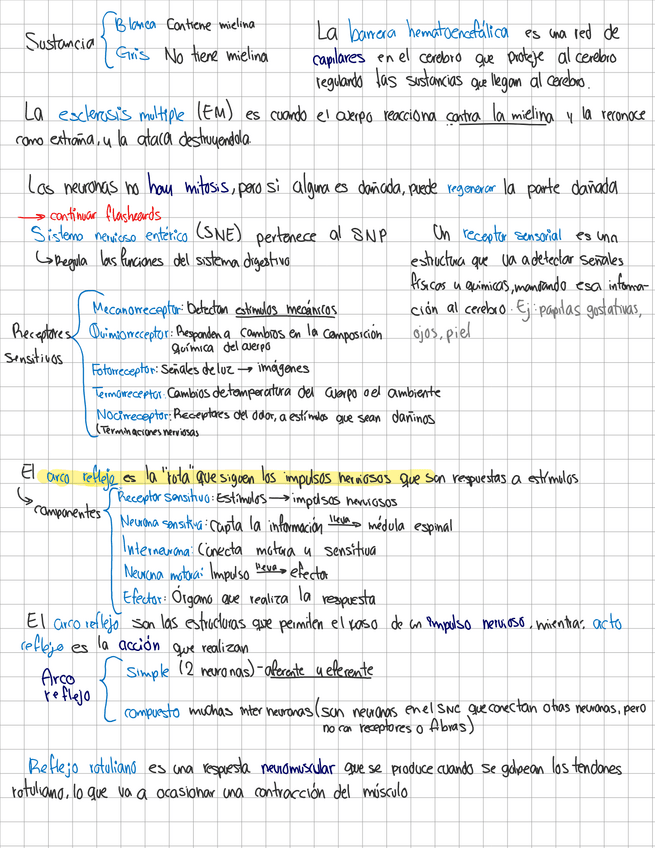 Sustancia
Blanca Contiene mielina
Gris No tiene mielina
La barrera hematoencefálica es una red de
capilares en el cerebro que proteje al cerebro
regulando las sustancias que llegan al cerebro.
La esclerosis multiple (EM) es cuando el cuerpo reacciona contra la mielina y la reconoce
como extraña, y la ataca destruyendola
Las neuronas no hay mitosis, pero si alguna es dañada, puede regenerar la parte dañada
→ continuar flashcards
Sistema nervioso entérico (SNE) pertenece al SNP
↳ Regula las funciones del sistema digestivo
Un receptor sensorial es una
estructura que va a detectar señales
físicas y quimicas, mandando esa informa-
ción al cerebro. Ej: papilas gustativas,
ojos, piel
Receptores
sensitivos
Mecanorreceptor: Detectan estimulos mecánicos
Quimiorreceptor: Responden a cambios en la composición
química del cuerpo
Fotorreceptor: Señales de luz → imágenes
Termorreceptor: Cambios de temperatura del cuerpo o el ambiente
Nocirreceptor: Receptores del dolor, a estímulos que sean dañinos
(Terminaciones nerviosas
El arco reflejo es la "ruta" que siguen los impulsos nerviosos que son respuestas a estímulos
↳ componentes
Receptor sensitivo: Estímulos → impulsos nerviosos
Neurona sensitiva: Capta la información lleva→ médula espinal
Interneurona: Conecta motora y sensitiva
Neurona motora: Impulso lleva→ efector
Efector: Órgano que realiza la respuesta
El arco reflejo son las estructuras que permiten el paso de un impulso nervioso, mientras acto
reflejo es la acción que realizan
Arco
reflejo
simple (2 neuronas) - aferente y eferente
compuesto muchas inter neuronas (son neuronas en el SNC que conectan otras neuronas, pero
no con receptores o fibras)
Reflejo rotuliano es una respuesta neuromuscular que se produce cuando se golpean los tendones
rotuliano, lo que va a ocasionar una contracción del músculo